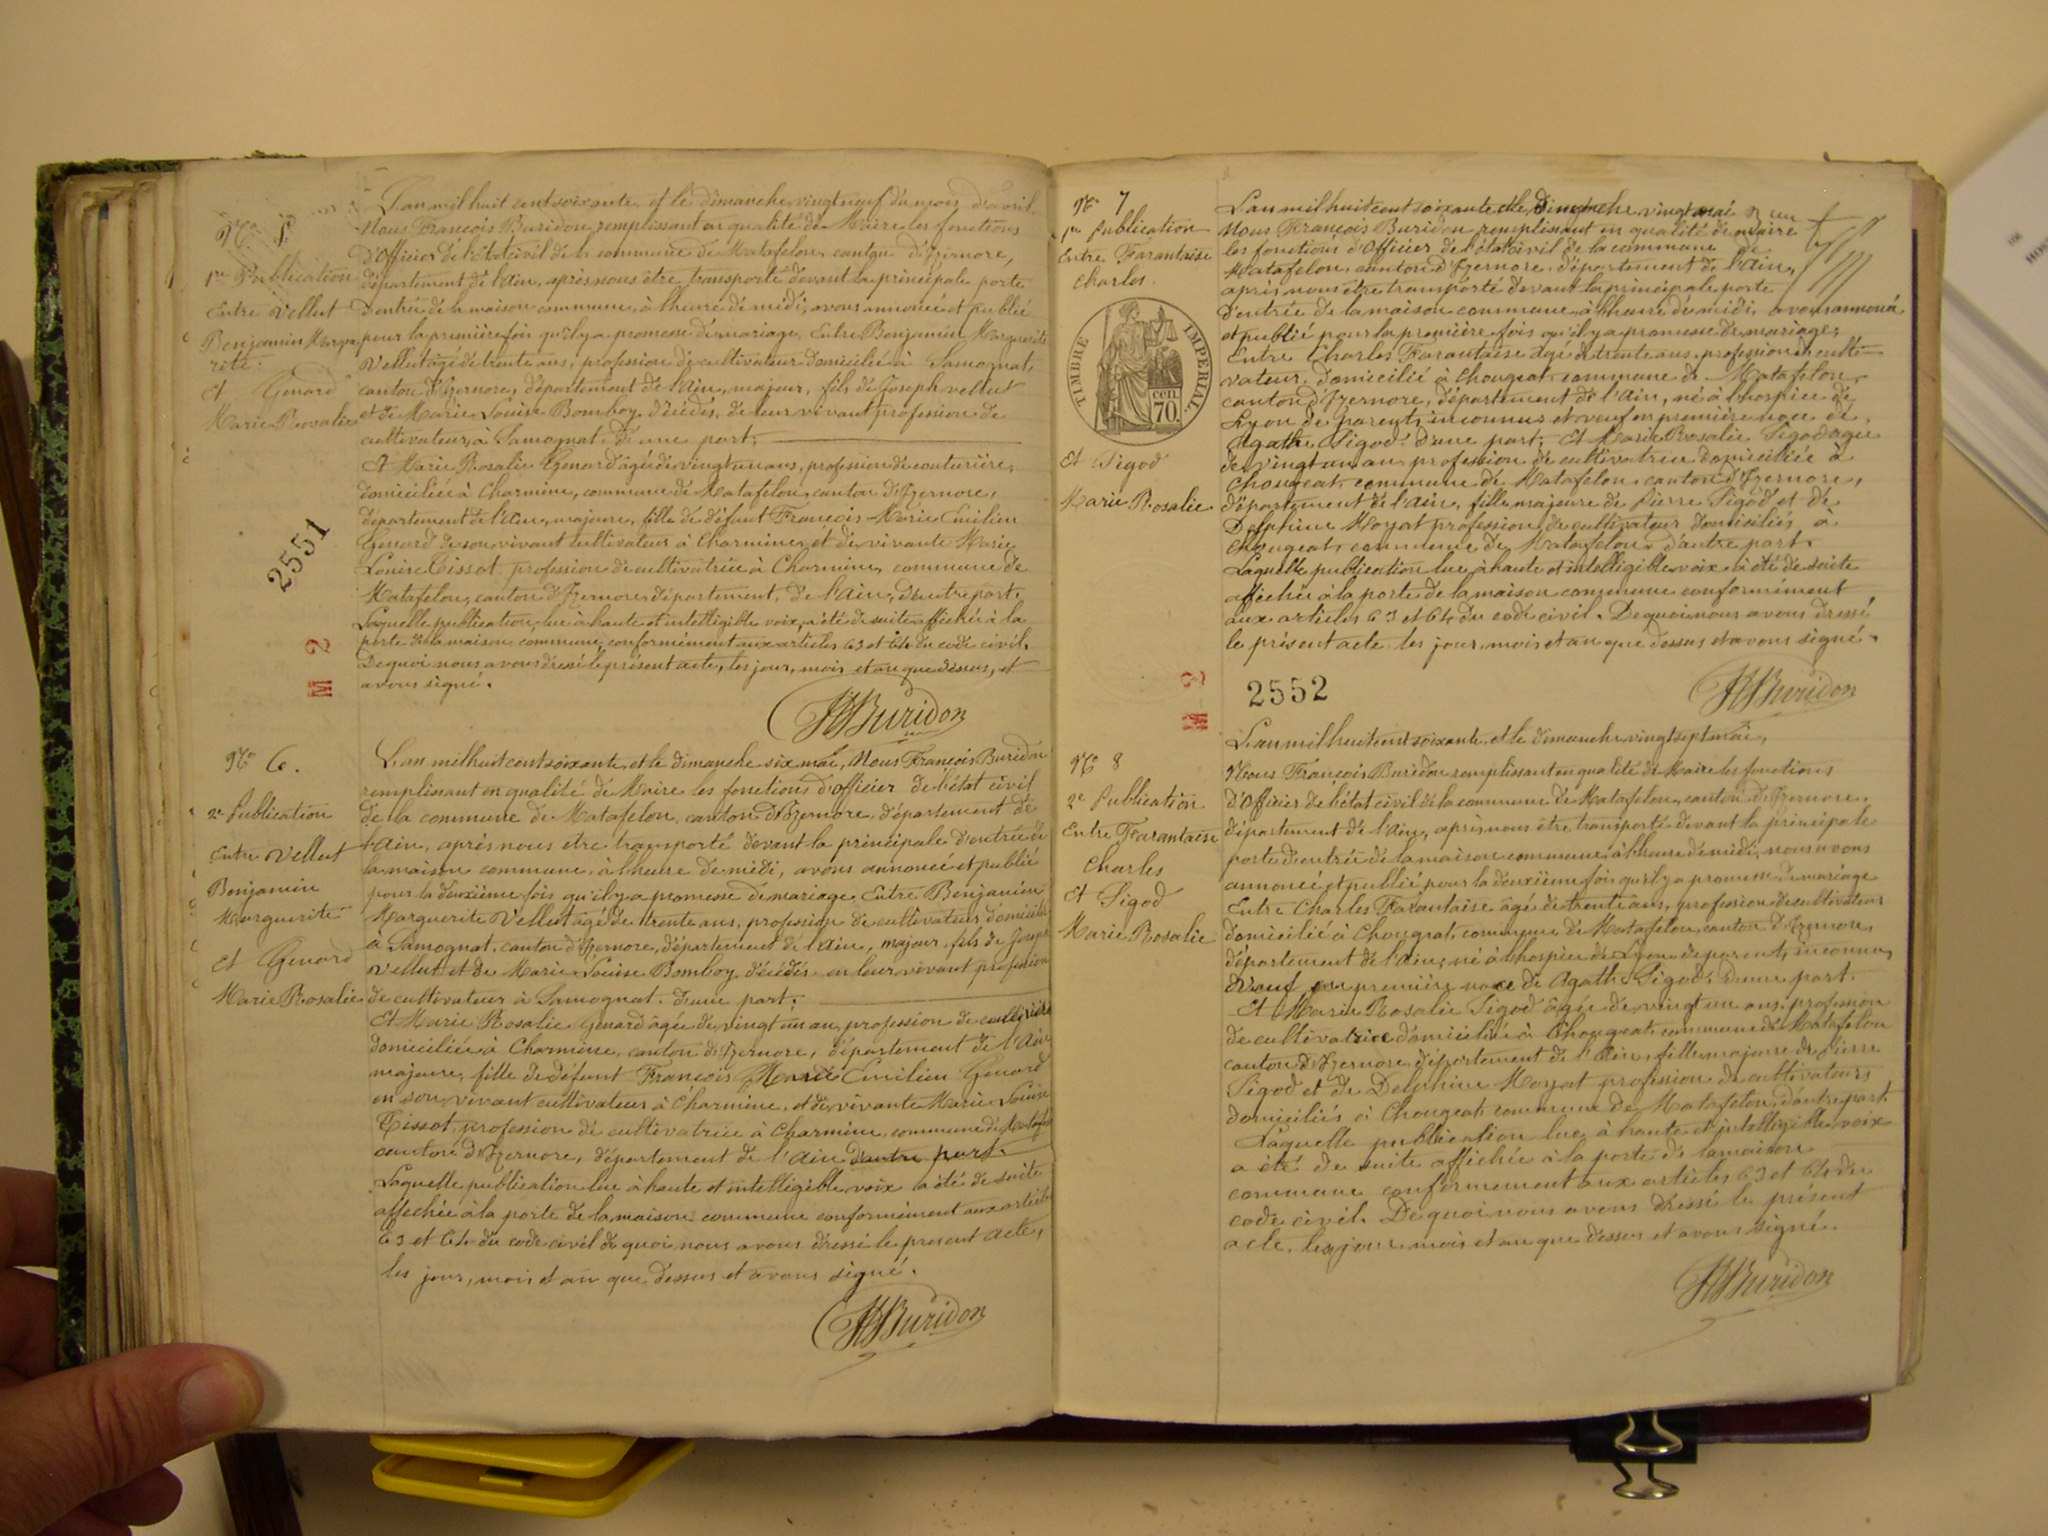 N° 5
1re Publication
Entre Vellut
Benjamin Margue
rite.
Et Genard
Marie Rosalie
L'an mil huit cent soixante, et le dimanche vingt neuf du mois d'avril.
Nous François Buridon, remplissant en qualité de Maire les fonctions
d'Officier de l'état civil de la commune de Matafelon, canton d'Izernore,
département de l'Ain, après nous être transporté devant la principale porte
d'entrée de la maison commune, à l'heure de midi, avons annoncé et publié
pour la première fois qu'il y a promesse de mariage, Entre Benjamin Marguerite
Vellut agé de trente ans, profession de cultivateur domicilié à Samognat,
canton d'Izernore, département de l'Ain, majeur, fils de Joseph Vellut
et de Marie Louise Bomboy, décédés, de leur vivant profession de
cultivateur, à Samognat, d'une part,
Et Marie Rosalie Genard âgée de vingt un ans, profession de couturière,
domiciliée à Charmine, commune de Matafelon, canton d'Izernore,
département de l'Ain, majeure, fille de défunt François Marie Emilien
Genard de son vivant cultivateur à Charmine, et de vivante Marie
Louise Tissot profession de cultivatrice à Charmine, commune de
Matafelon, canton d'Izernore, département, de l'Ain, d'autre part.
Laquelle publication, lue à haute et intelligible voix, a été de suite affichée à la
porte de la maison commune, conformément aux articles 63 et 64 du code civil.
De quoi nous avons dressé le présent acte, les jour, mois et an que dessus, et
avons signé.
Buridon
2551
M 2
N° 6.
2e Publication
Entre Vellut
Benjamin
Marguerite
Et Genard
Marie Rosalie
L'an mil huit cent soixante, et le dimanche six mai, Nous François Buridon
remplissant en qualité de Maire les fonctions d'officier de l'état civil
de la commune de Matafelon, canton d'Izernore, département de
l'Ain, après nous etre transporté devant la principale d'entrée de
la maison commune, à l'heure de midi, avons annoncé et publié
pour la deuxième fois qu'il y a promesse de mariage, Entre Benjamin
Marguerite Vellut agé de trente ans, profession de cultivateur domicilié
à Samognat, canton d'Izernore, département de l'Ain, majeur, fils de Joseph
Vellut et de Marie Louise Bomboy, décédés en leur vivant profession
de cultivateur à Samognat. d'une part.
Et Marie Rosalie Genard âgée de vingt un an, profession de
domiciliée à Charmine, canton d'Izernore, département de l'Ain
majeure, fille de défunt François Marie Emilien Genard
en son vivant cultivateur à Charmine, et de vivante Marie Louise
Tissot, profession de cultivatrice à Charmine, commune de Matafelon
canton d'Izernore, département de l'Ain d'autre part.
Laquelle publication lue à haute et intelligible voix a été de suite
affichée à la porte de la maison commune conformément aux articles
63 et 64 du code civil de quoi nous avons dressé le present acte,
les jour, mois et an que dessus et avons signé.
Buridon
N° 7
1re Publication
Entre Farantaise
Charles.
TIMBRE IMPERIAL.
70 cen
Et Sigod
Marie Rosalie
L'an mil huit cent soixante et le Dimanche vingt mai
Nous François Buridon remplissant en qualité de maire
les fonctions d'Officier de l'état civil de la commune de
Matafelon, canton d'Izernore, département de l'Ain,
après nous etre transporté devant la principale porte
d'entrée de la maison commune, à l'heure de midi, avons annoncé
et publié pour la première fois qu'il y a promesse de mariage,
Entre Charles Farantaise agé de trente ans, profession de culti-
vateur, domicilié à Chougeat, commune de Matafelon,
canton d'Izernore, département de l'Ain, né à l'hospice de
Lyon de parents inconnus et veuf en première noce de
Agathe Sigod. d'une part, Et Marie Rosalie Sigod agée
de vingt un an profession de cultivatrice domiciliée à
Chougeat, commune de Matafelon, canton d'Izernore,
département de l'Ain, fille majeure de Pierre Sigod et de
Delphine Moyat profession de cultivateur domiciliés à
Chougeat, commune de Matafelon, d'autre part.
Laquelle publication lue à haute et intelligible voix a été de suite
affichée à la porte de la maison commune conformément
aux articles 63 et 64 du code civil. De quoi nous avons dressé
le présent acte les jour, mois et an que dessus et avons signé.
Buridon
M 2
2552
N° 8
2e Publication
Entre Farantaise
Charles
Et Sigod
Marie Rosalie
L'an mil huit cent soixante, et le dimanche vingt sept mai,
Nous François Buridon remplissant en qualité de Maire les fonctions
d'Officier de l'état civil de la commune de Matafelon, canton d'Izernore,
département de l'Ain, après nous être transporté devant la principale
porte d'entrée de la maison commune, à l'heure de midi, nous avons
annoncé et publié pour la deuxième fois qu'il y a promesse de mariage
Entre Charles Farantaise âgé de trente ans, profession de cultivateur
domicilié à Chougeat, commune de Matafelon, canton d'Izernore,
département de l'Ain, né à l'hospice de Lyon de parents inconnus,
veuf en première noce de Agathe Sigod, d'une part.
Et Marie Rosalie Sigod âgée de vingt un ans, profession
de cultivatrice domiciliée à Chougeat commune de Matafelon
canton d'Izernore, département de l'Ain, fille majeure de Pierre
Sigod et de Delphine Moyat profession de cultivateurs
domiciliés à Chougeat commune de Matafelon, d'autre part.
Laquelle publication lue à haute et intelligible voix
a été de suite affichée à la porte de la maison
commune conformement aux articles 63 et 64 du
code civil. De quoi nous avons dressé le présent
acte, les jour mois et an que dessus et avons signé.
Buridon